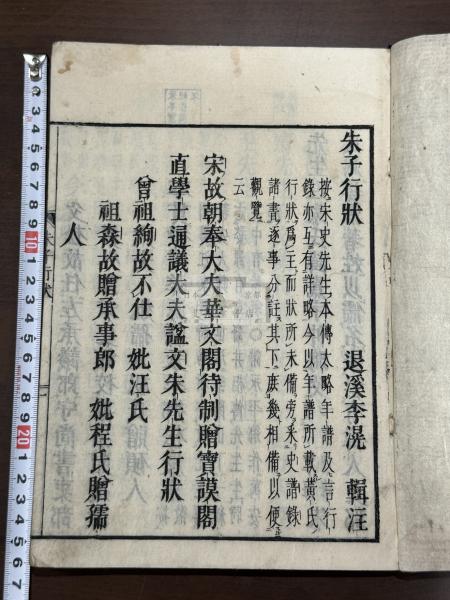 朱子行狀 退溪李滉 輯注
按朱史先生本傳太略年譜及言行
錄亦互有詳略今以年譜所載黃氏
行狀爲主而狀所未備旁采史譜錄
諸書逐事分註其下庶幾相備以便
觀覽
云
宋故朝奉大夫華文閣待制贈寶謨閣
直學士通議大夫諡文朱先生行狀
曾祖絢故不仕 妣汪氏
祖森故贈承事郎 妣程氏贈孺
人
朱子行狀
一
1 2 3 4 5 6 7 8 9 10 1 2 3 4 5 6 7 8 9 20 1 2 3 4 5 6 7